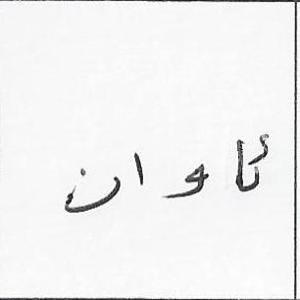 ئاوان